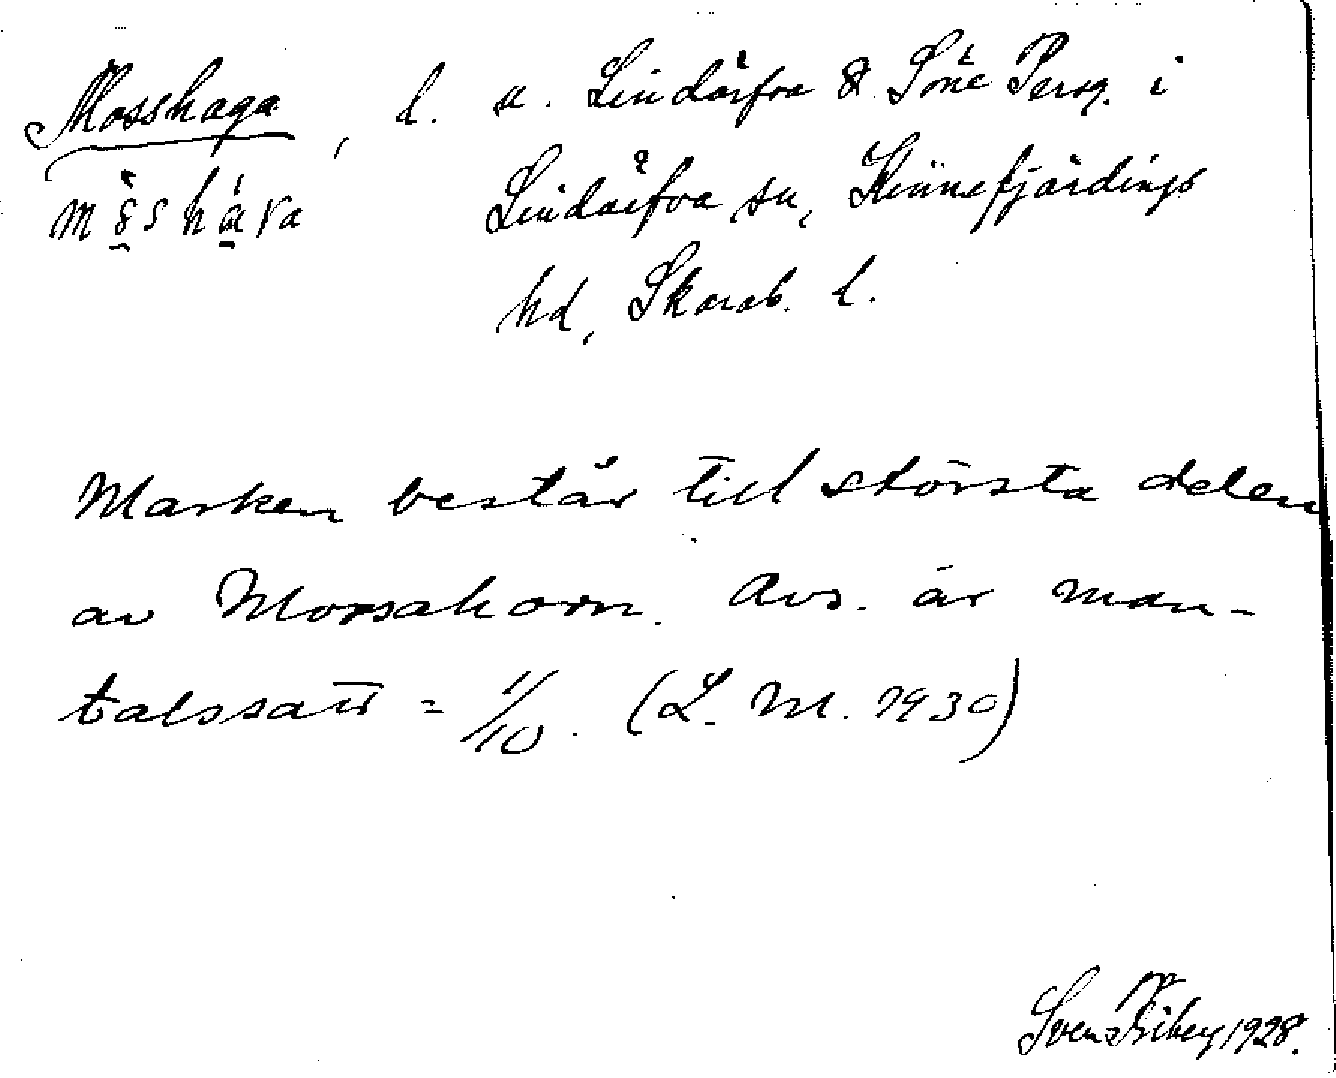 Mosshaga, l. u. Lindärfva & Söne Persg. i
Lindärfva sn, Kinnefjärdings
hd, Skarab. l.
Marken består till största delen
av Mossahorn. Avs. är man-
talssatt = 1/10. (L. M. 1930)
Sven Friberg 1928.